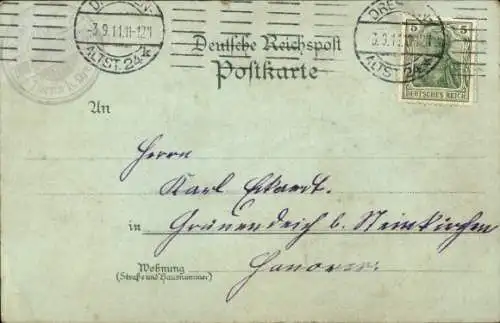 DRESDEN-
3.9.11.11-12N
ALTST.24k
Deutsche Reichspost
Postkarte
DRES
3.9.11
ALTST.24
5
5
DEUTSCHES REICH
An
Herrn
Karl Eckardt.
in Grünendeich b. Steinkirchen
Hanover.
Wohnung
(Straße und Hausnummer)